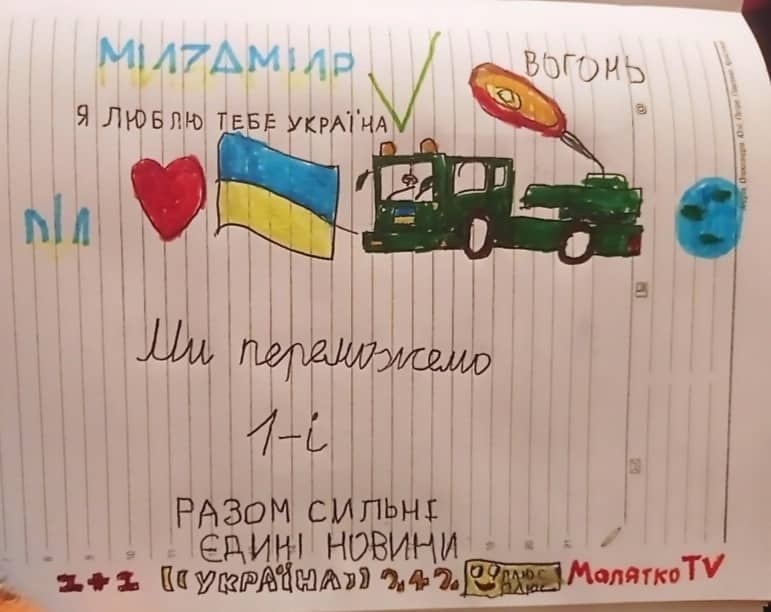 ВОГОНЬ
Я ЛЮБЛЮ ТЕБЕ УКРАЇНА
Ми переможемо
1-і
РАЗОМ СИЛЬНІ
ЄДИНІ НОВИНИ
1+1 ((УКРАЇНА)) 2+2 ПЛЮС ПЛЮС Малятко TV